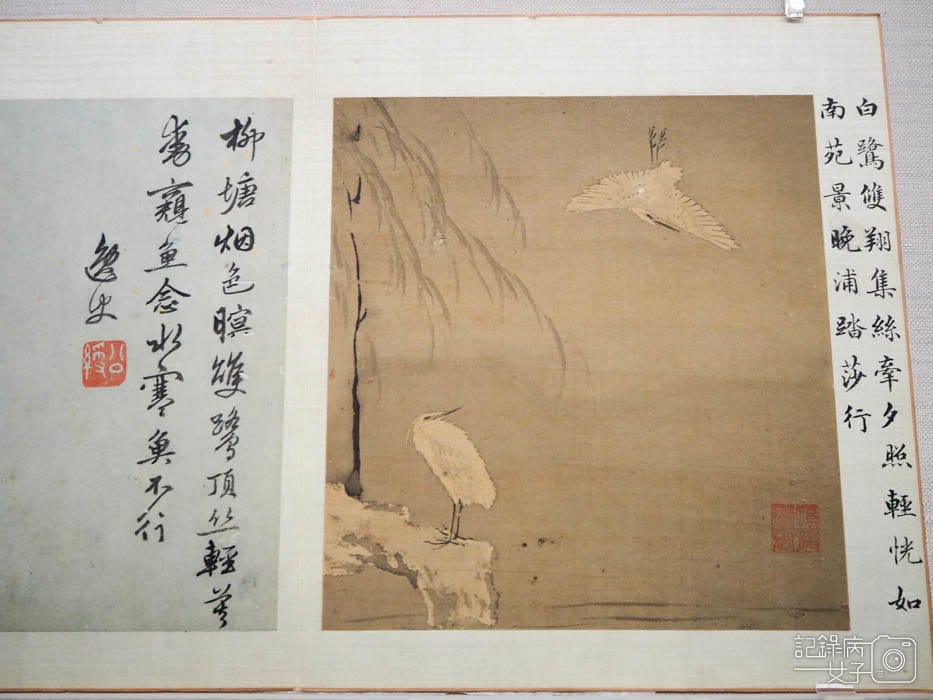 白鷺雙翔集絲牽夕照輕恍如
南苑景晚浦踏莎行
柳塘烟色暝雙鷺頂絲輕莫
窺魚念水寒魚不行
逸史
公綬
記錄病
女子